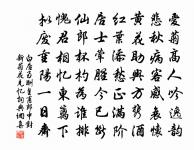 愛菊高人吟逸韻
悲秋病客感衰懷
黃花助興方攜酒
紅葉添愁正滿階
居士葷腥今已斷
仙郎杯杓為誰排
愧君相憶東籬下
擬廢重陽一日齋
白居易酬皇甫郎中對
新菊花見憶